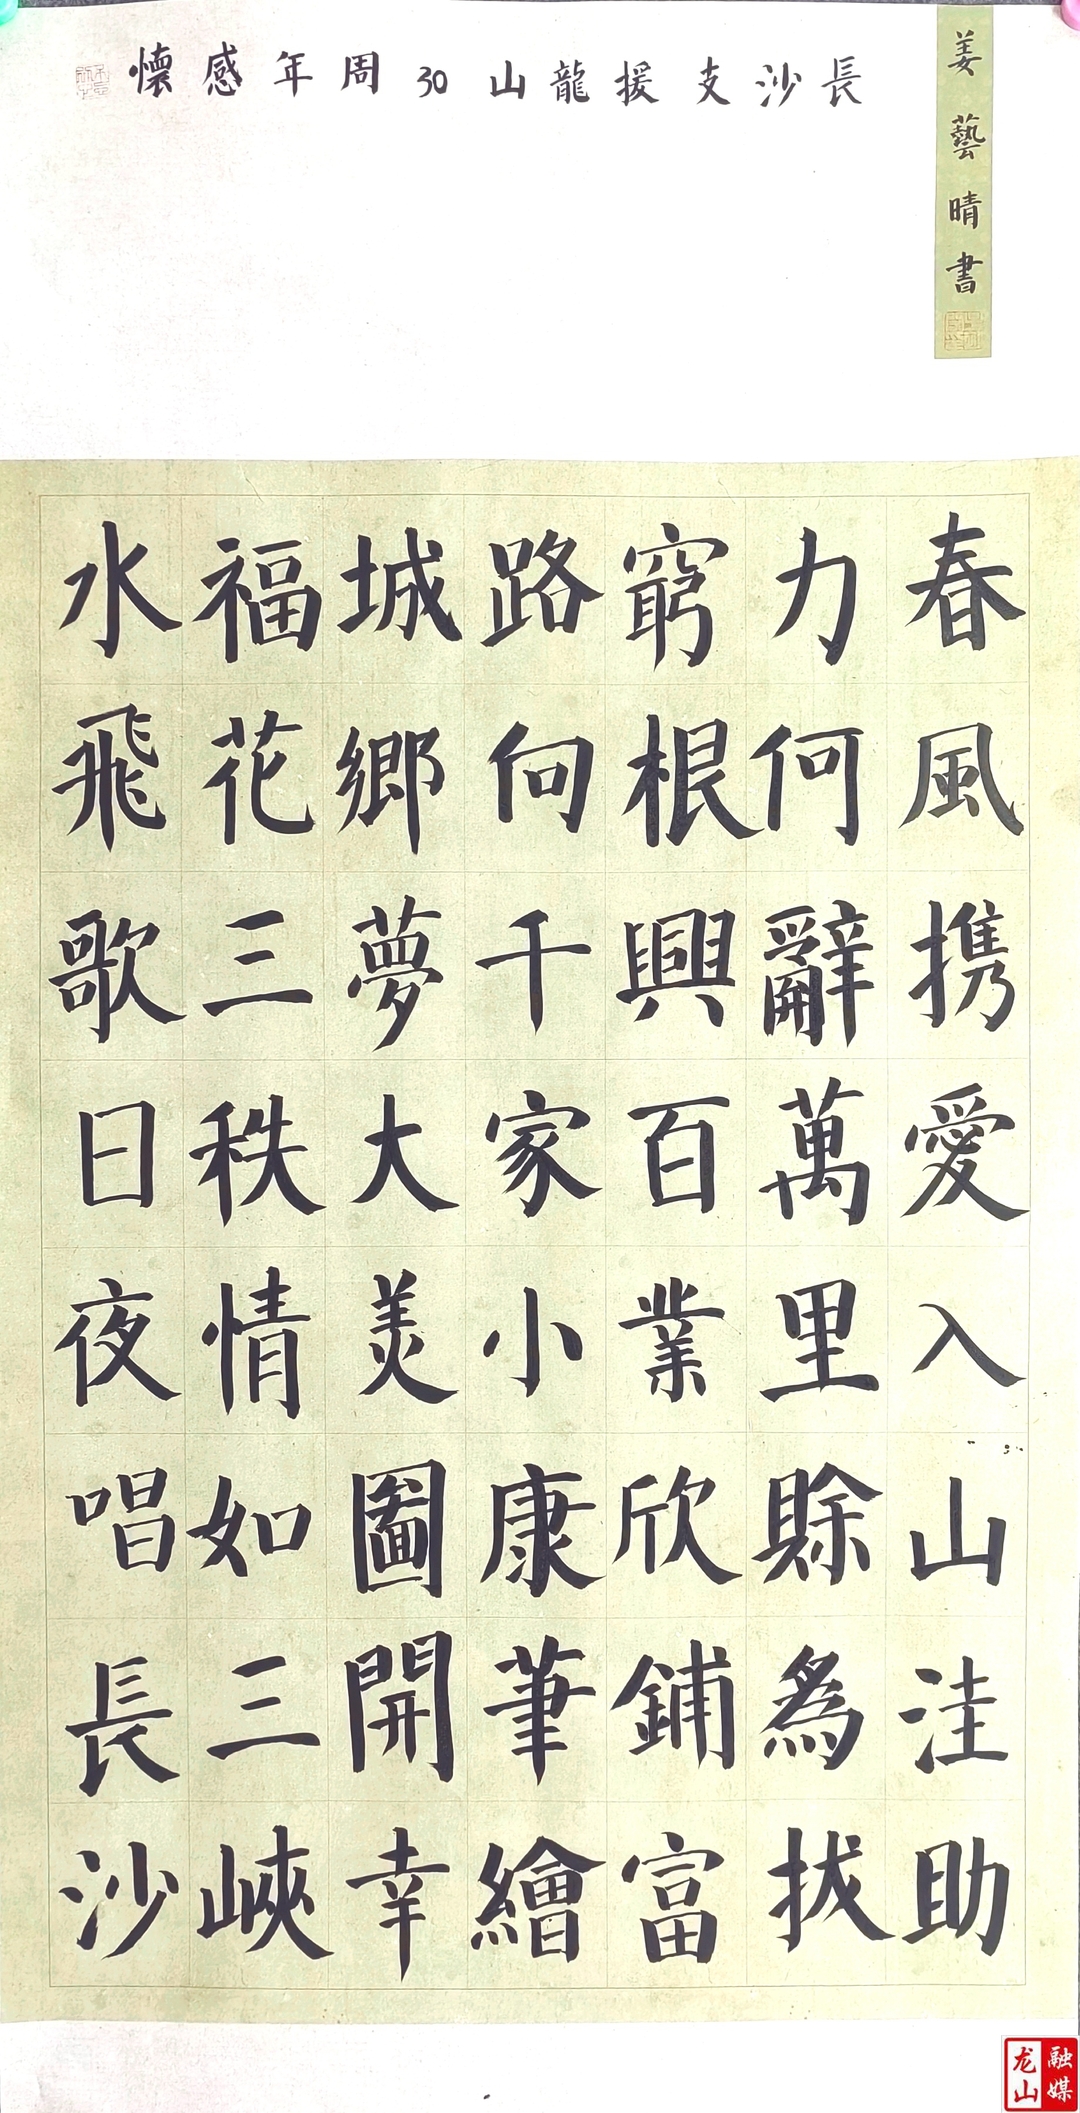 長沙支援龍山30周年感懷
姜藝晴書
春風携愛入山洼助
力何辭萬里賖為拔
窮根興百業欣鋪富
路向千家小康筆繪
城鄉夢大美圖開幸
福花三秩情如三峽
水飛歌日夜唱長沙
龙山
融媒